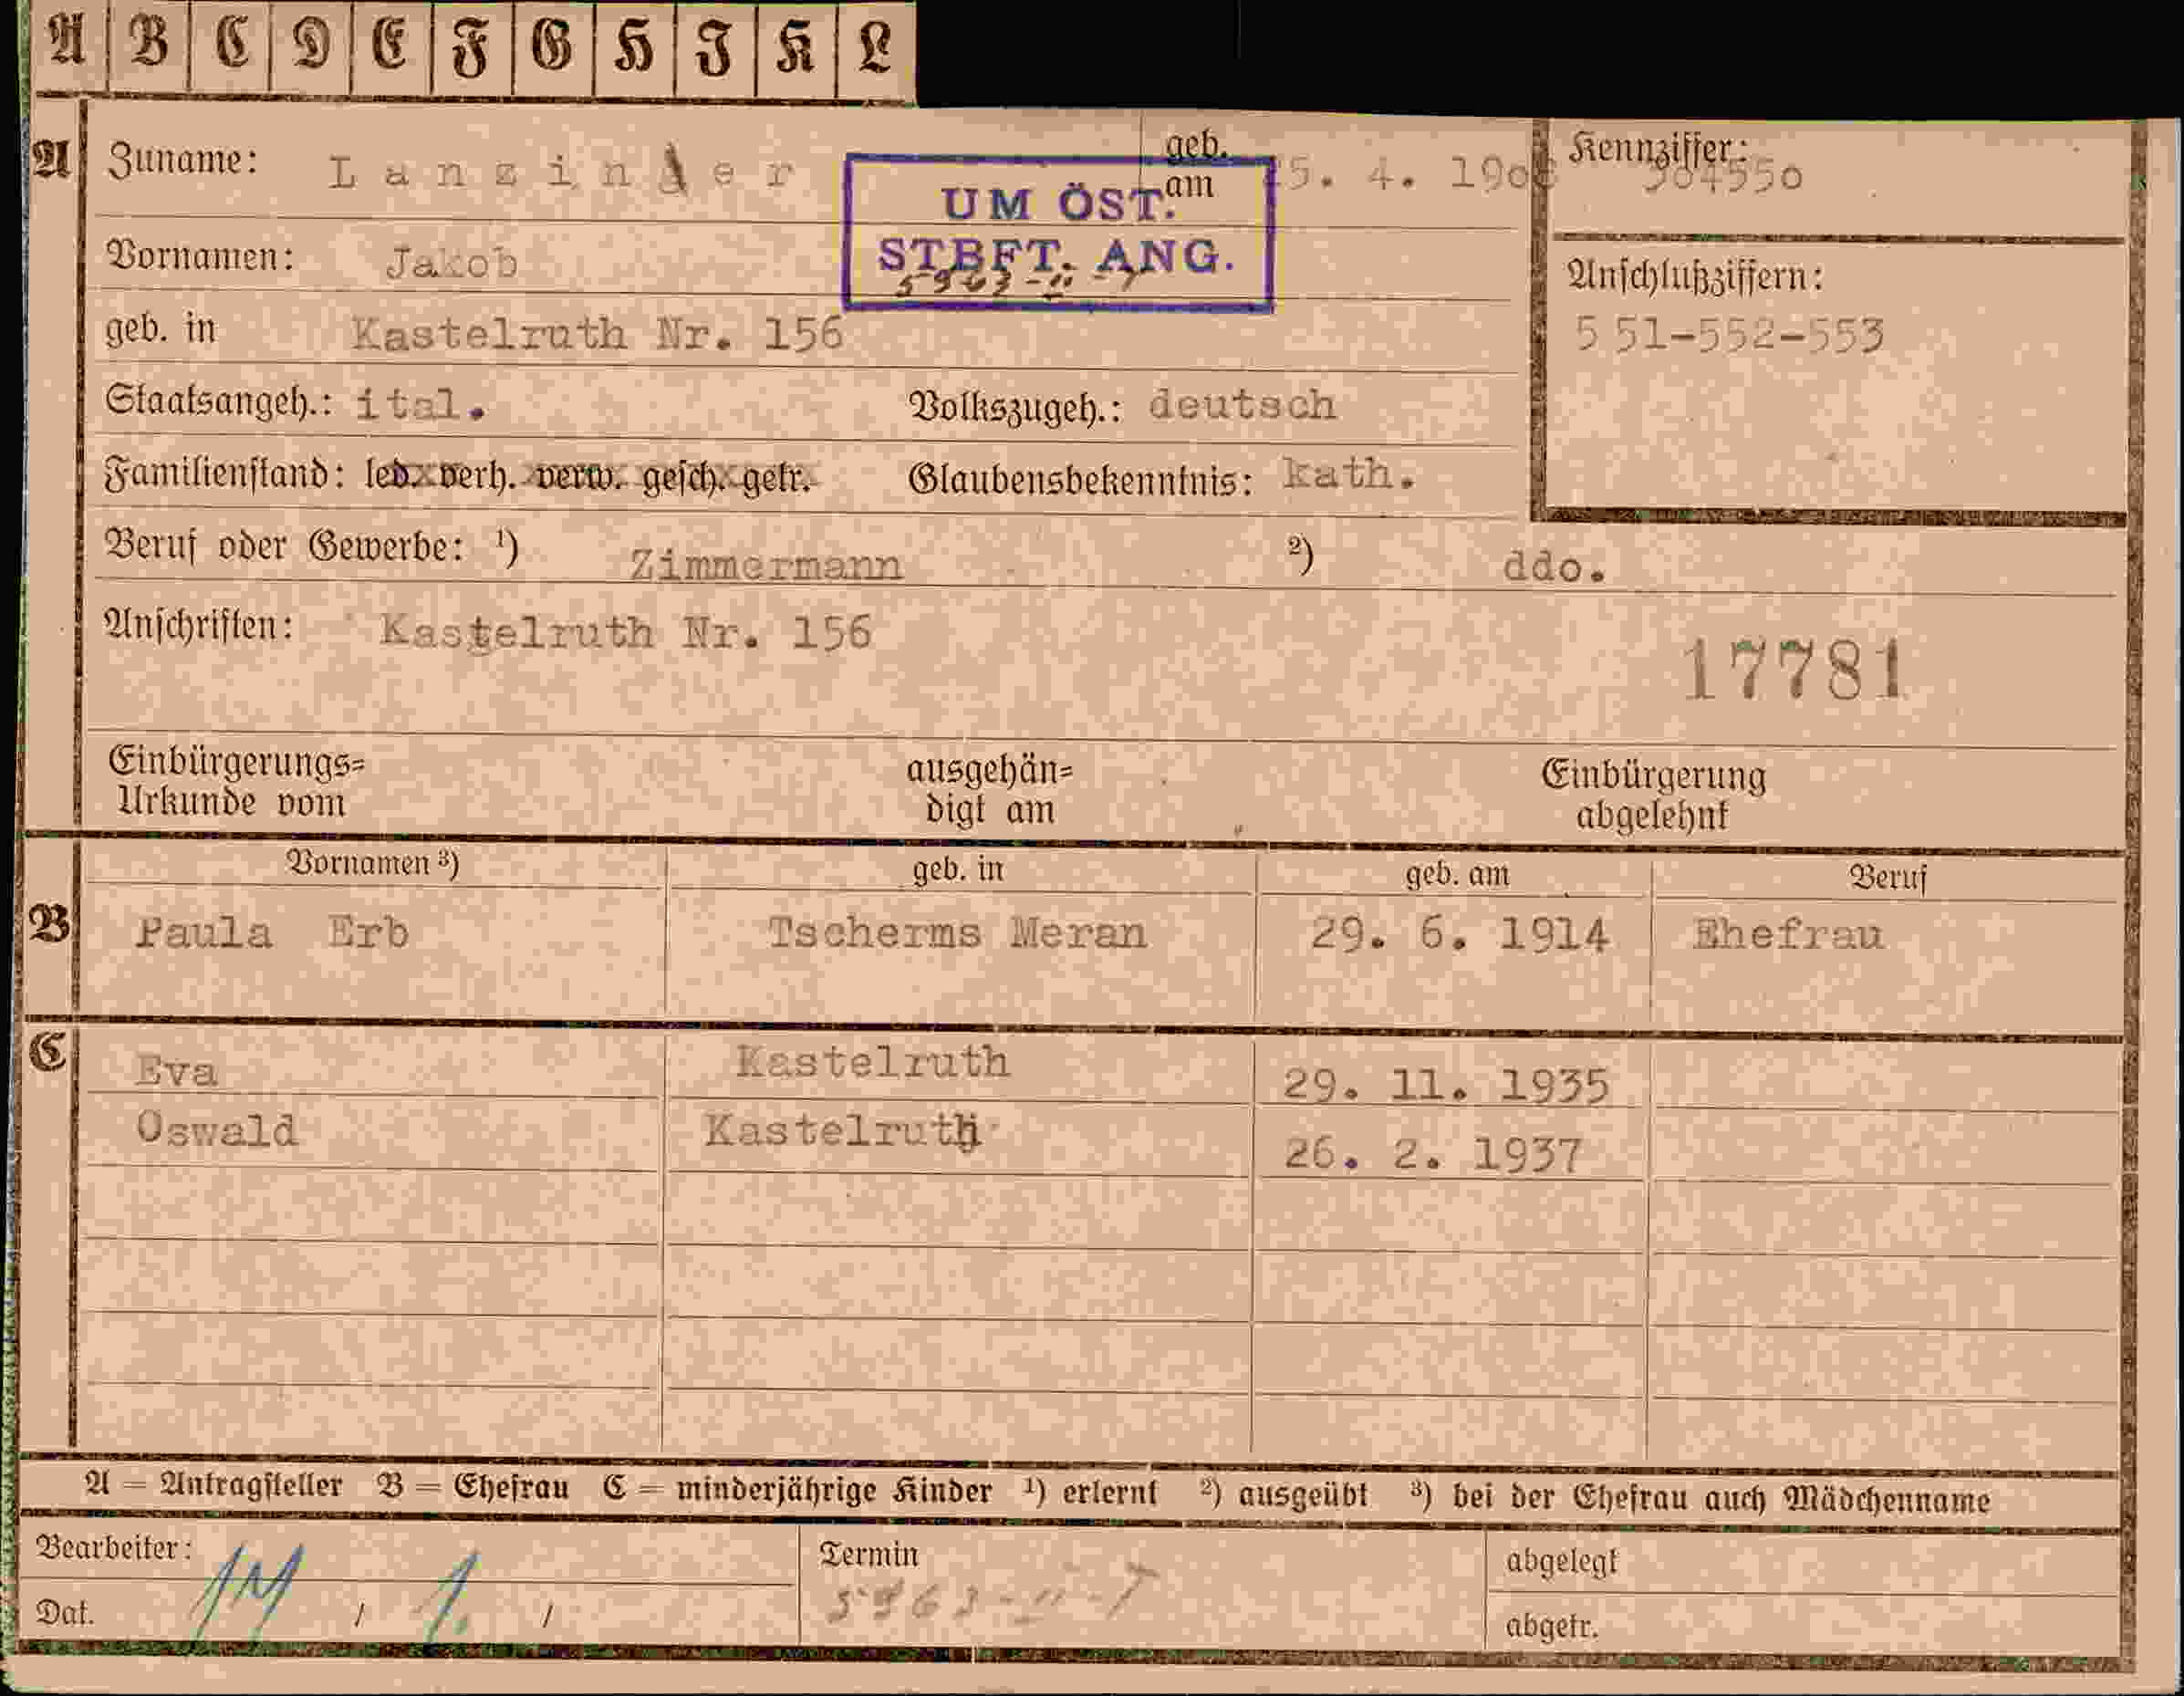 A B C D E F G H I K L
A Zuname: Lanzin er geb. am 5. 4. 190 Kennziffer: 304550
UM ÖST.
STBFT. ANG.
5963-II-7
Vornamen: Jakob
Anschlußziffern:
551-552-553
geb. in Kastelruth Nr. 156
Staatsangeh.: ital. Volkszugeh.: deutsch
Familienstand: led. verh. verw. gesch. getr. Glaubensbekenntnis: kath.
Beruf oder Gewerbe: 1) Zimmermann 2) ddo.
Anschriften: Kastelruth Nr. 156
17781
Einbürgerungs= ausgehän= Einbürgerung
Urkunde vom digt am abgelehnt
Vornamen 3) geb. in geb. am Beruf
B Paula Erb Tscherms Meran 29. 6. 1914 Ehefrau
C Eva Kastelruth 29. 11. 1935
Oswald Kastelruth 26. 2. 1937
A = Antragsteller B = Ehefrau C = minderjährige Kinder 1) erlernt 2) ausgeübt 3) bei der Ehefrau auch Mädchenname
Bearbeiter: Termin abgelegt
Dat. / / 5963-II-7 abgetr.